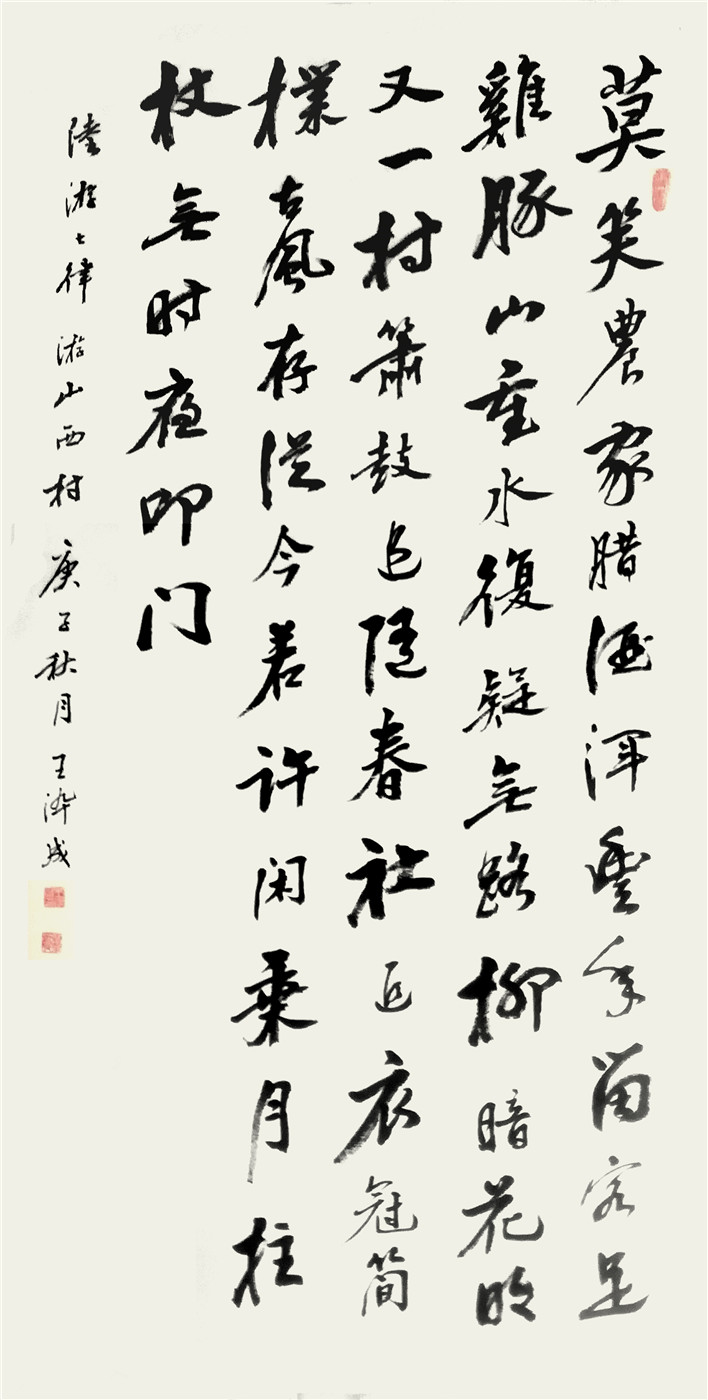 莫笑農家腊酒渾豐年留客足
雞豚山重水復疑無路柳暗花明
又一村簫鼓追隨春社近衣冠简
樸古風存從今若许闲乘月拄
杖無时夜叩门
陸游七律 游山西村 庚子秋月 王 成